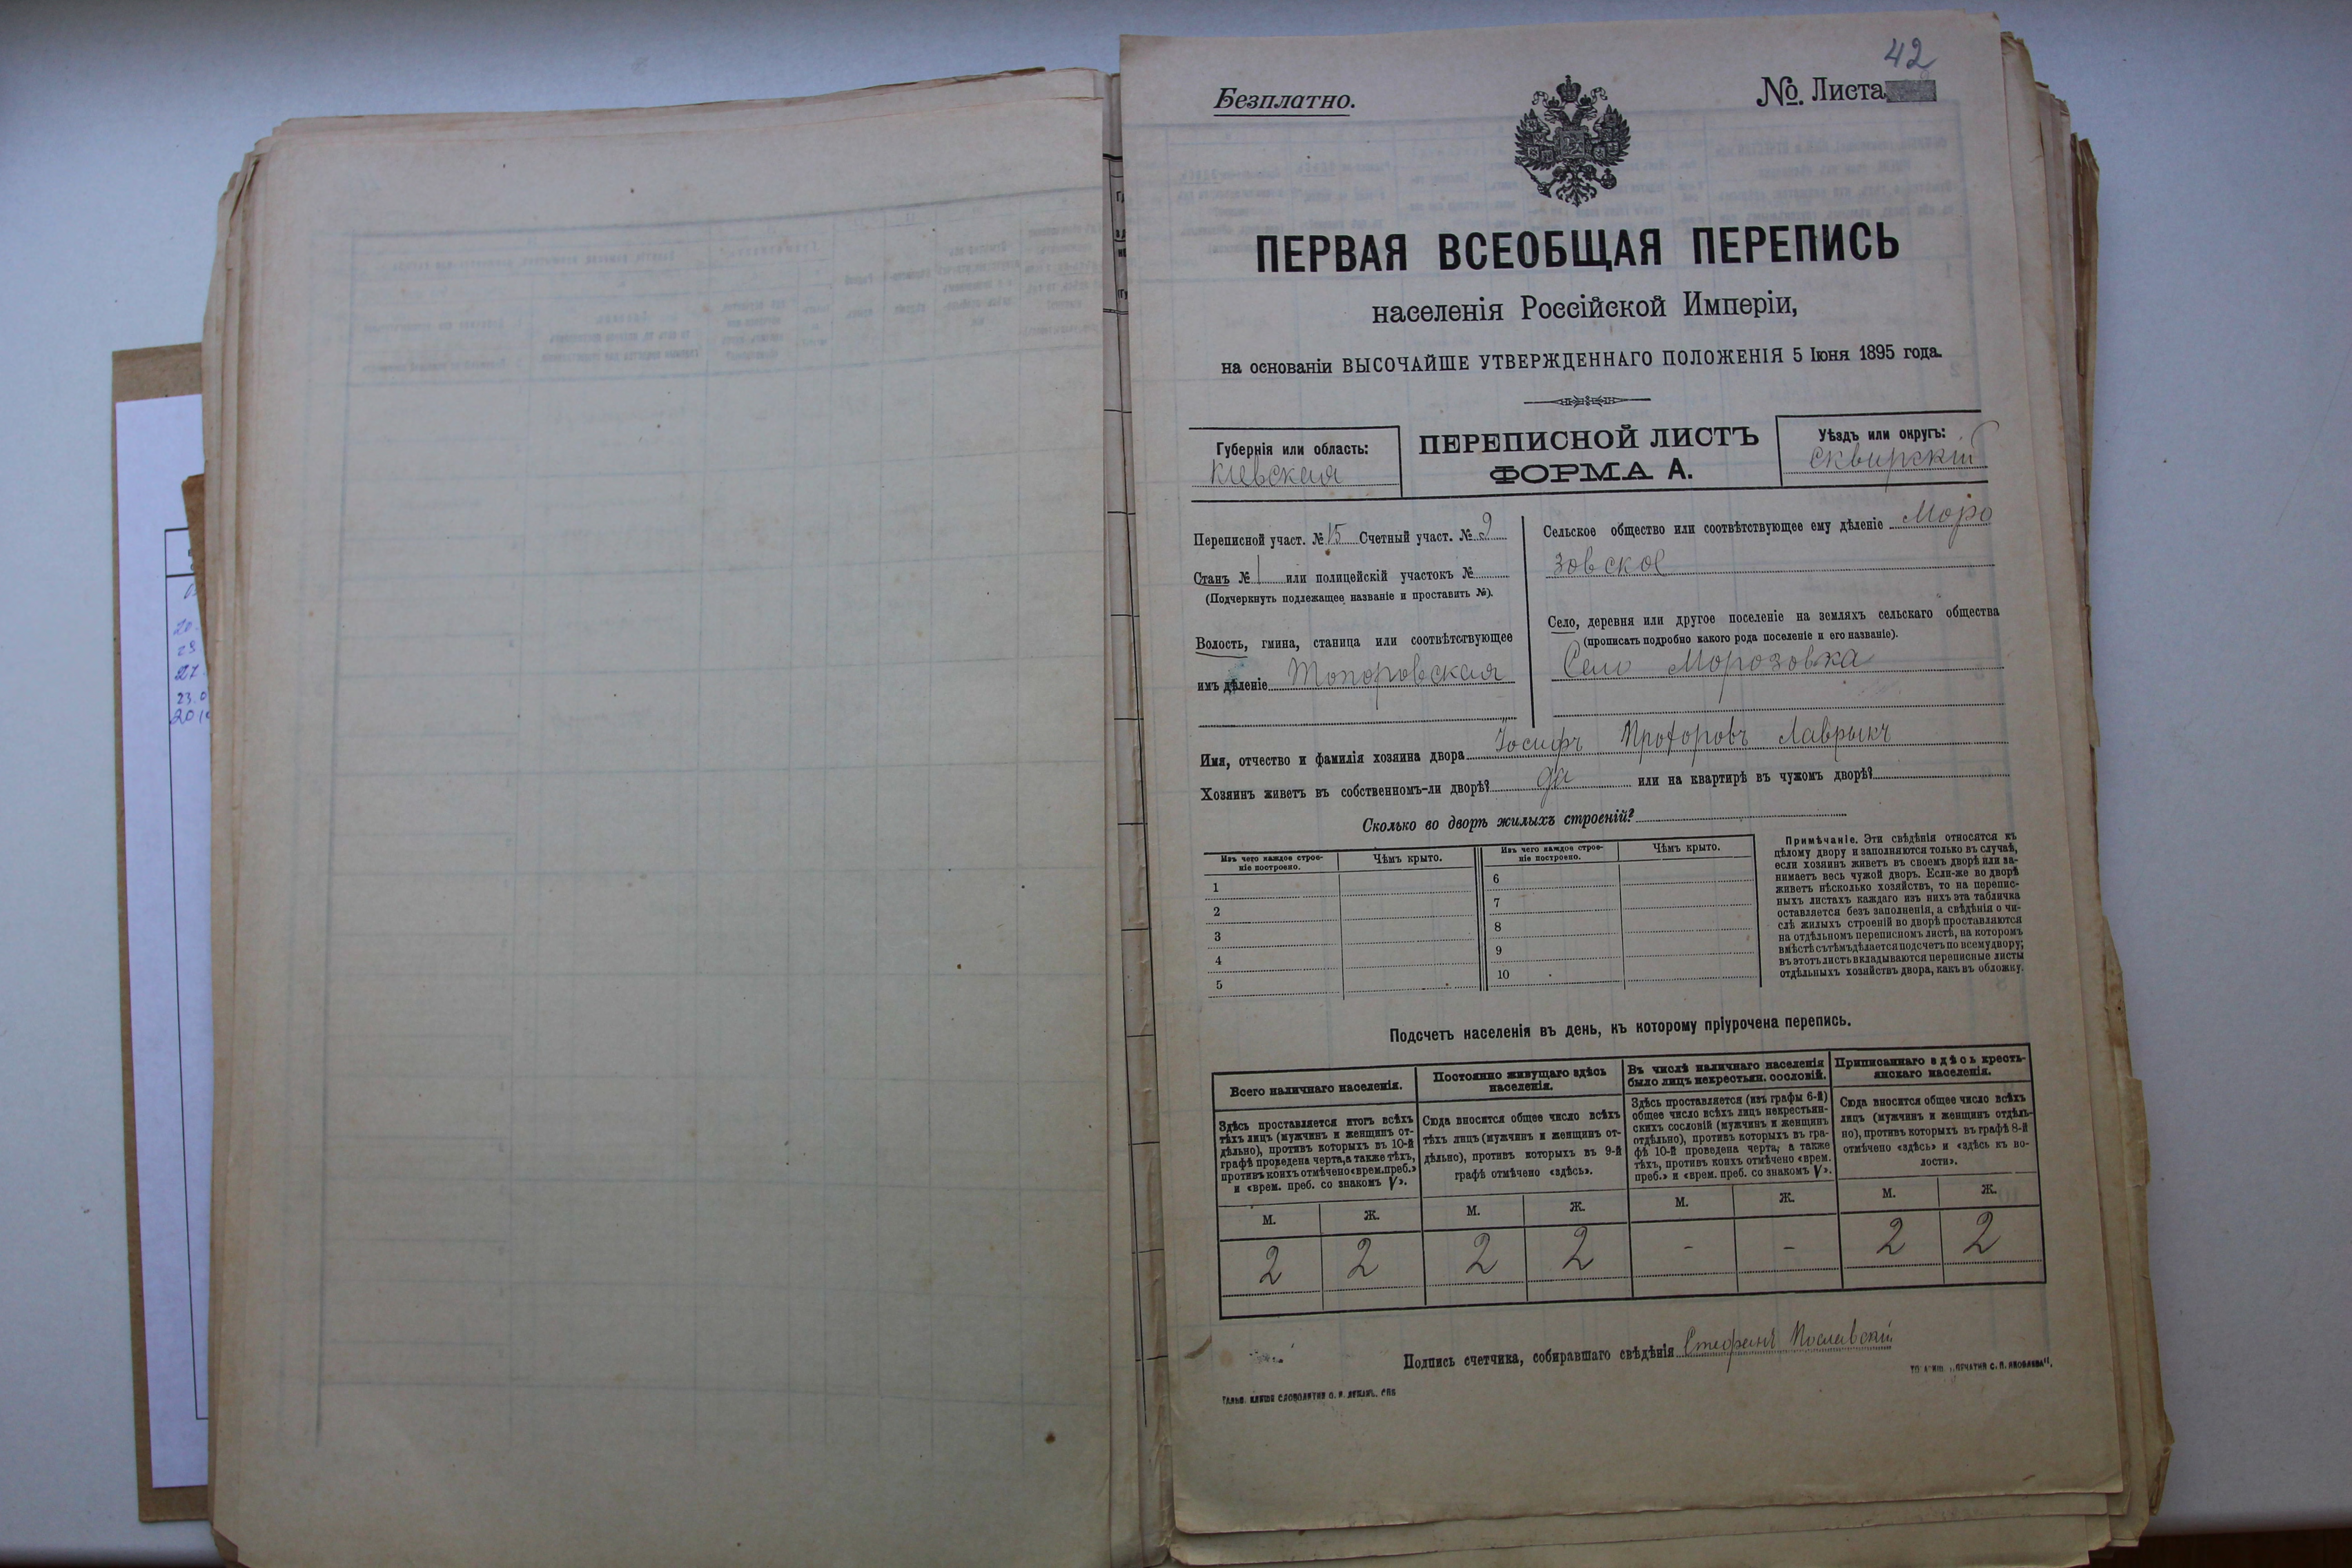 42
Безплатно.
№ Листа
ПЕРВАЯ ВСЕОБЩАЯ ПЕРЕПИСЬ
населенія Россійской Имперіи,
на основаніи ВЫСОЧАЙШЕ УТВЕРЖДЕННАГО ПОЛОЖЕНІЯ 5 Іюня 1895 года.
Губернія или область:
Кіевская
ПЕРЕПИСНОЙ ЛИСТЪ
ФОРМА А.
Уѣздъ или округъ:
Сквирскій
Переписной участ. № 15 Счетный участ. № 2
Станъ № 1 или полицейскій участокъ №
(Подчеркнуть подлежащее названіе и проставить №).
Волость, гмина, станица или соотвѣтствующее
имъ дѣленіе Топоровская
Сельское общество или соотвѣтствующее ему дѣленіе Моро
зовское
Село, деревня или другое поселеніе на земляхъ сельскаго общества
(прописать подробно какого рода поселеніе и его названіе).
Село Морозовка
Имя, отчество и фамилія хозяина двора Іосифъ Прохоровъ Лаврыкъ
Хозяинъ живетъ въ собственномъ-ли дворѣ? да или на квартирѣ въ чужомъ дворѣ?
Сколько во дворѣ жилыхъ строеній?
Изъ чего каждое строе-
ніе построено.
Чѣмъ крыто.
Изъ чего каждое строе-
ніе построено.
Чѣмъ крыто.
1
2
3
4
5
6
7
8
9
10
Примѣчаніе. Эти свѣдѣнія относятся къ
цѣлому двору и заполняются только въ случаѣ,
если хозяинъ живетъ въ своемъ дворѣ или за-
нимаетъ весь чужой дворъ. Если-же во дворѣ
живетъ нѣсколько хозяйствъ, то на перепис-
ныхъ листахъ каждаго изъ нихъ эта табличка
оставляется безъ заполненія, а свѣдѣнія о чи-
слѣ жилыхъ строеній во дворѣ проставляются
на отдѣльномъ переписномъ листѣ, на которомъ
вмѣстѣ съ тѣмъ дѣлается подсчетъ по всему двору;
въ этотъ листъ вкладываются переписные листы
отдѣльныхъ хозяйствъ двора, какъ въ обложку.
Подсчетъ населенія въ день, къ которому пріурочена перепись.
Всего наличнаго населенія.
Здѣсь проставляется итогъ всѣхъ
тѣхъ лицъ (мужчинъ и женщинъ от-
дѣльно), противъ которыхъ въ 10-й
графѣ проведена черта, а также тѣхъ,
противъ коихъ отмѣчено «врем. преб.»
и «врем. преб. со знакомъ V».
Постоянно живущаго здѣсь
населенія.
Сюда вносится общее число всѣхъ
тѣхъ лицъ (мужчинъ и женщинъ от-
дѣльно), противъ которыхъ въ 9-й
графѣ отмѣчено «здѣсь».
Въ числѣ наличнаго населенія
было лицъ некрестьян. сословій.
Здѣсь проставляется (изъ графы 6-й)
общее число всѣхъ лицъ некрестьян-
скихъ сословій (мужчинъ и женщинъ
отдѣльно), противъ которыхъ въ гра-
фѣ 10-й проведена черта, а также
тѣхъ, противъ коихъ отмѣчено «врем.
преб.» и «врем. преб. со знакомъ V».
Приписаннаго здѣсь кресть-
янскаго населенія.
Сюда вносится общее число всѣхъ
лицъ (мужчинъ и женщинъ отдѣль-
но), противъ которыхъ въ графѣ 8-й
отмѣчено «здѣсь» и «здѣсь въ во-
лости».
М. Ж. М. Ж. М. Ж. М. Ж.
2 2 2 2 - - 2 2
Подпись счетчика, собиравшаго свѣдѣнія Стефанъ